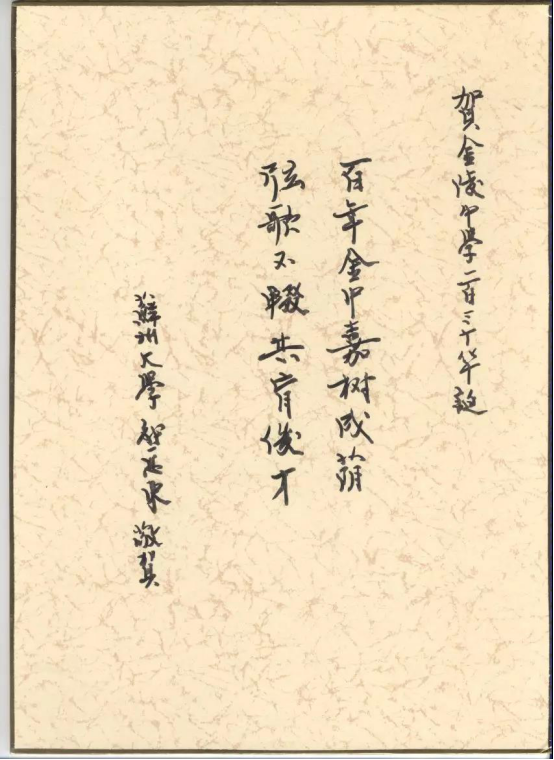 賀金陵中學一百三十华誕
百年金中嘉树成荫
弦歌不輟共育俊才
蘇州大學 熊思東 敬賀